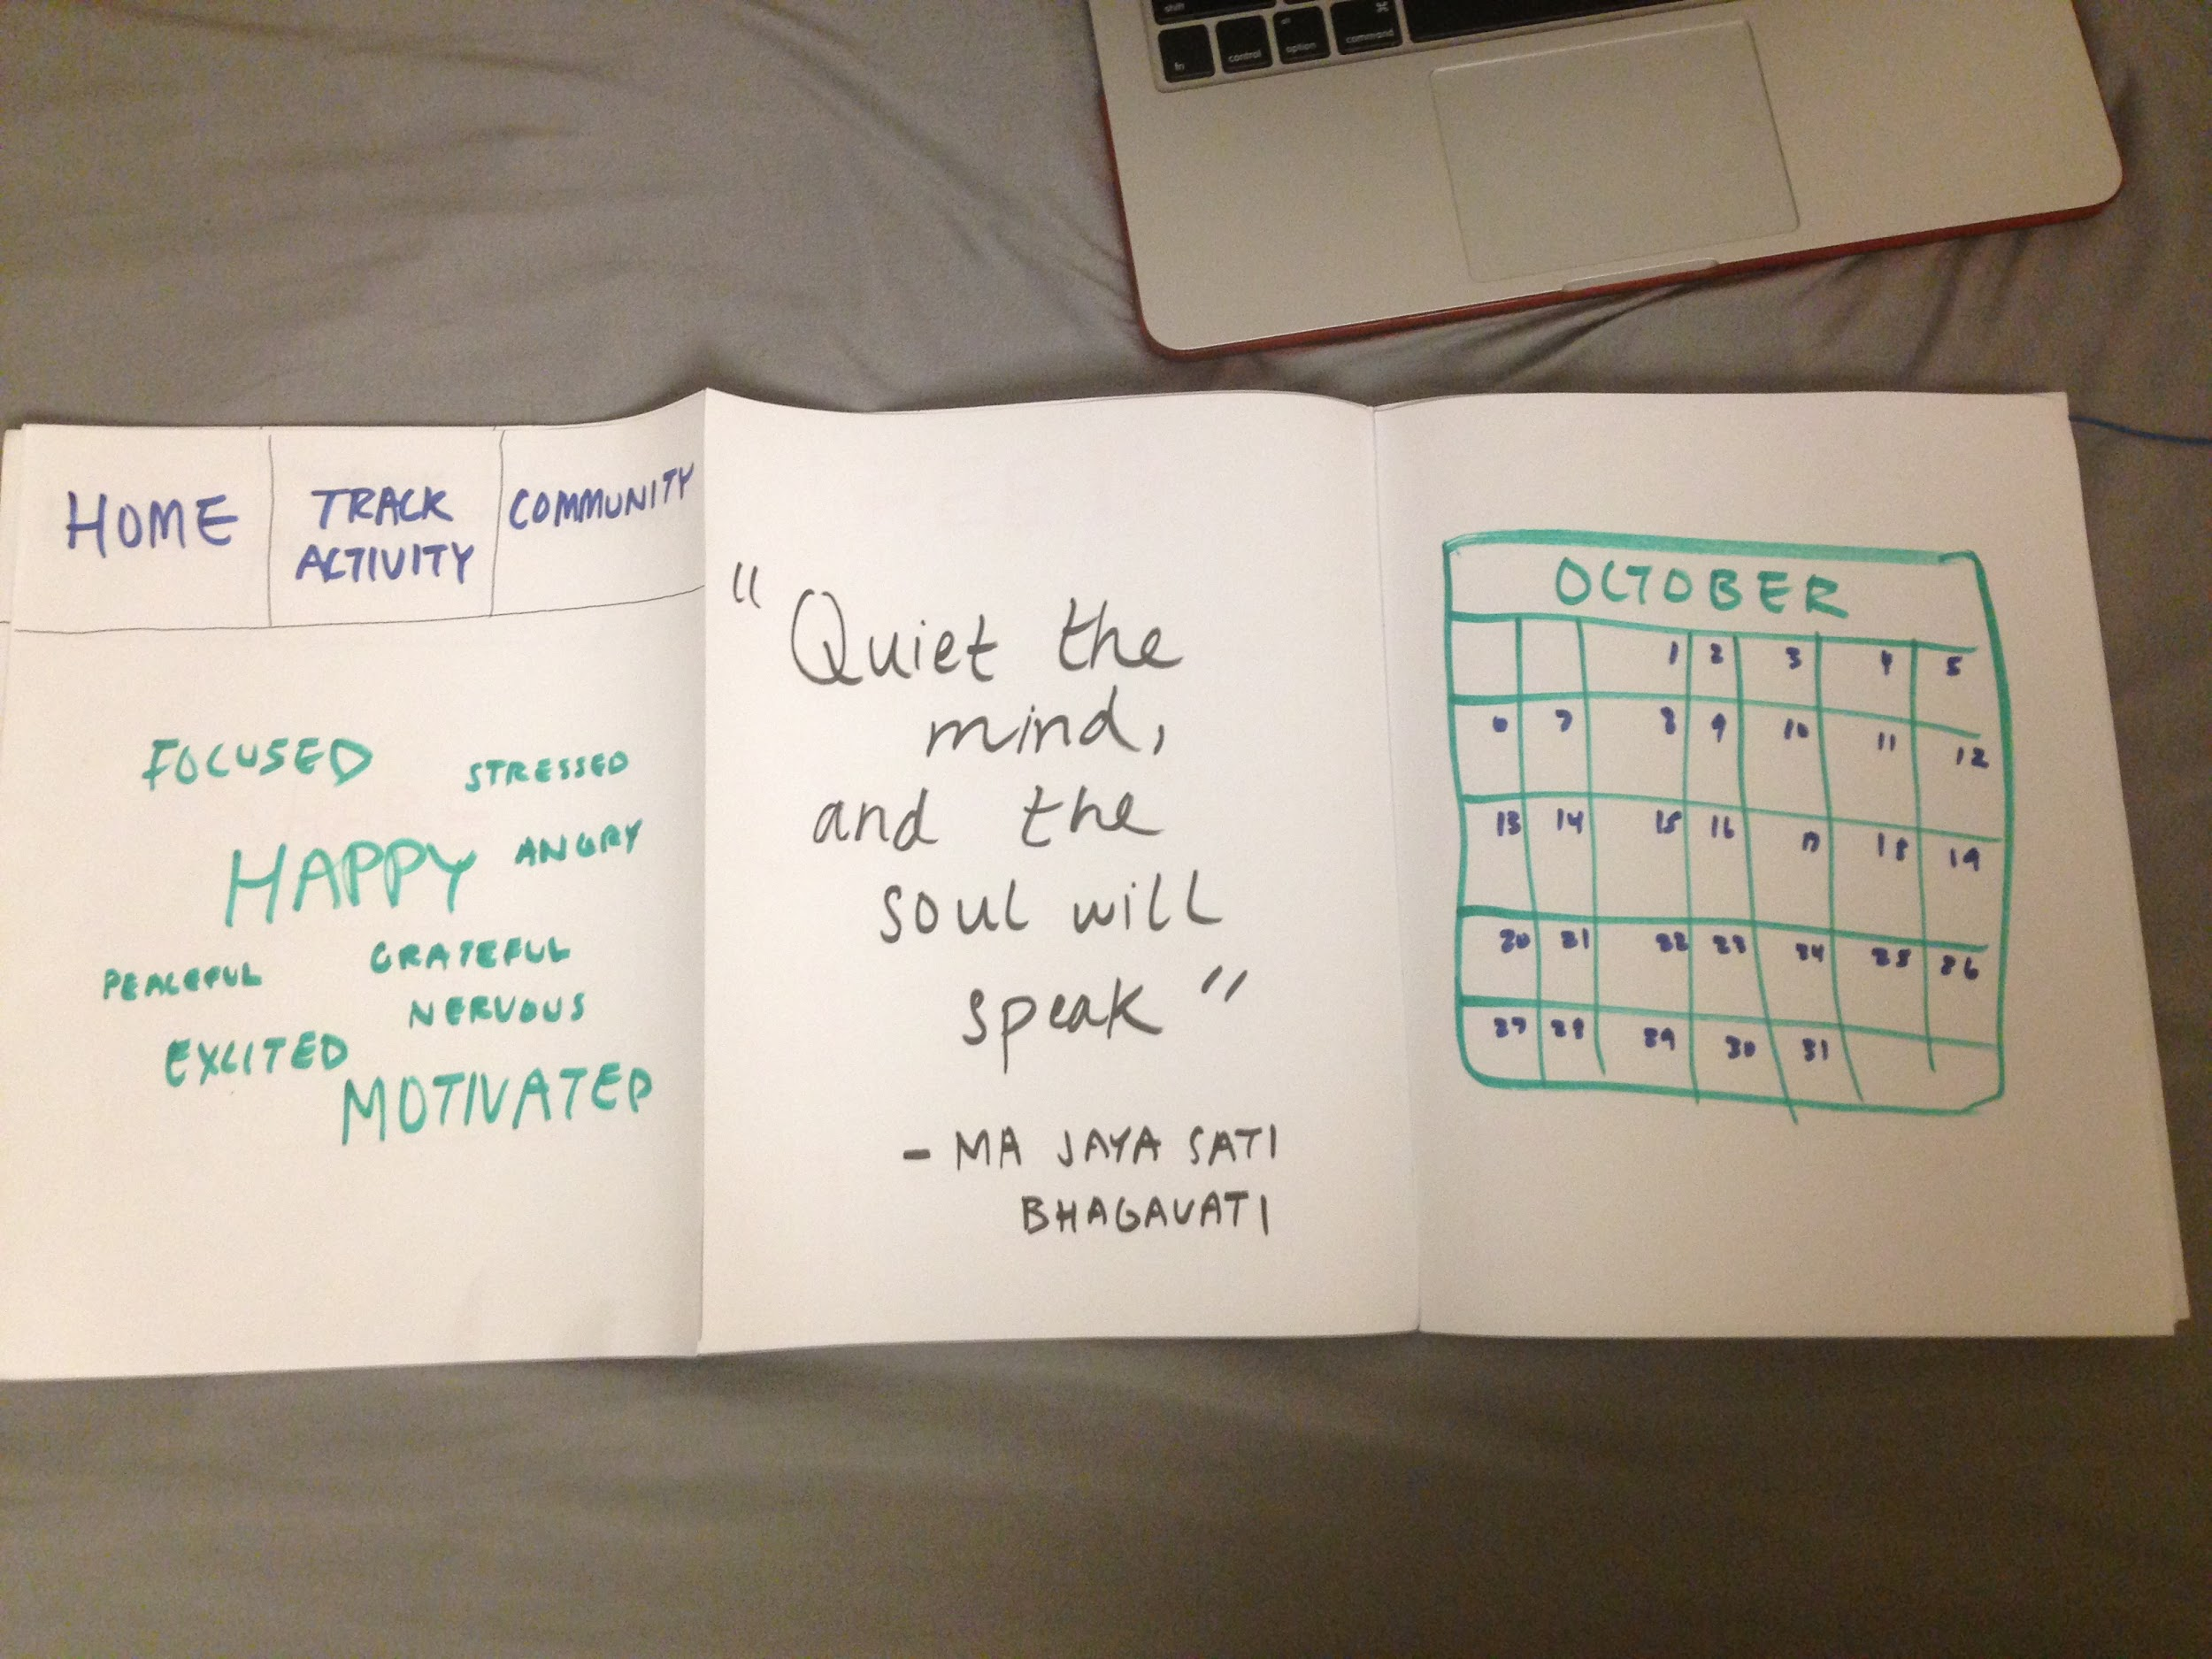 shift
fn control alt option ⌘ command
HOME
TRACK
ACTIVITY
COMMUNITY
FOCUSED
STRESSED
HAPPY
ANGRY
PEACEFUL
GRATEFUL
NERVOUS
EXCITED
MOTIVATED
"Quiet the
mind,
and the
soul will
speak"
- MA JAYA SATI
BHAGAVATI
OCTOBER
1 2 3 4 5
6 7 8 9 10 11 12
13 14 15 16 17 18 19
20 21 22 23 24 25 26
27 28 29 30 31